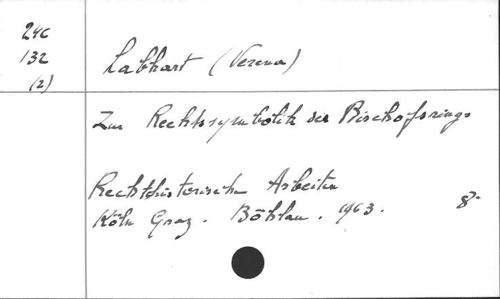 24c
132
(2)
Labhart (Verena)
Zur Rechtssymbolik des Bischofsrings
Rechtshistorische Arbeiten
Köln Graz. Böhlau. 1963. 8°